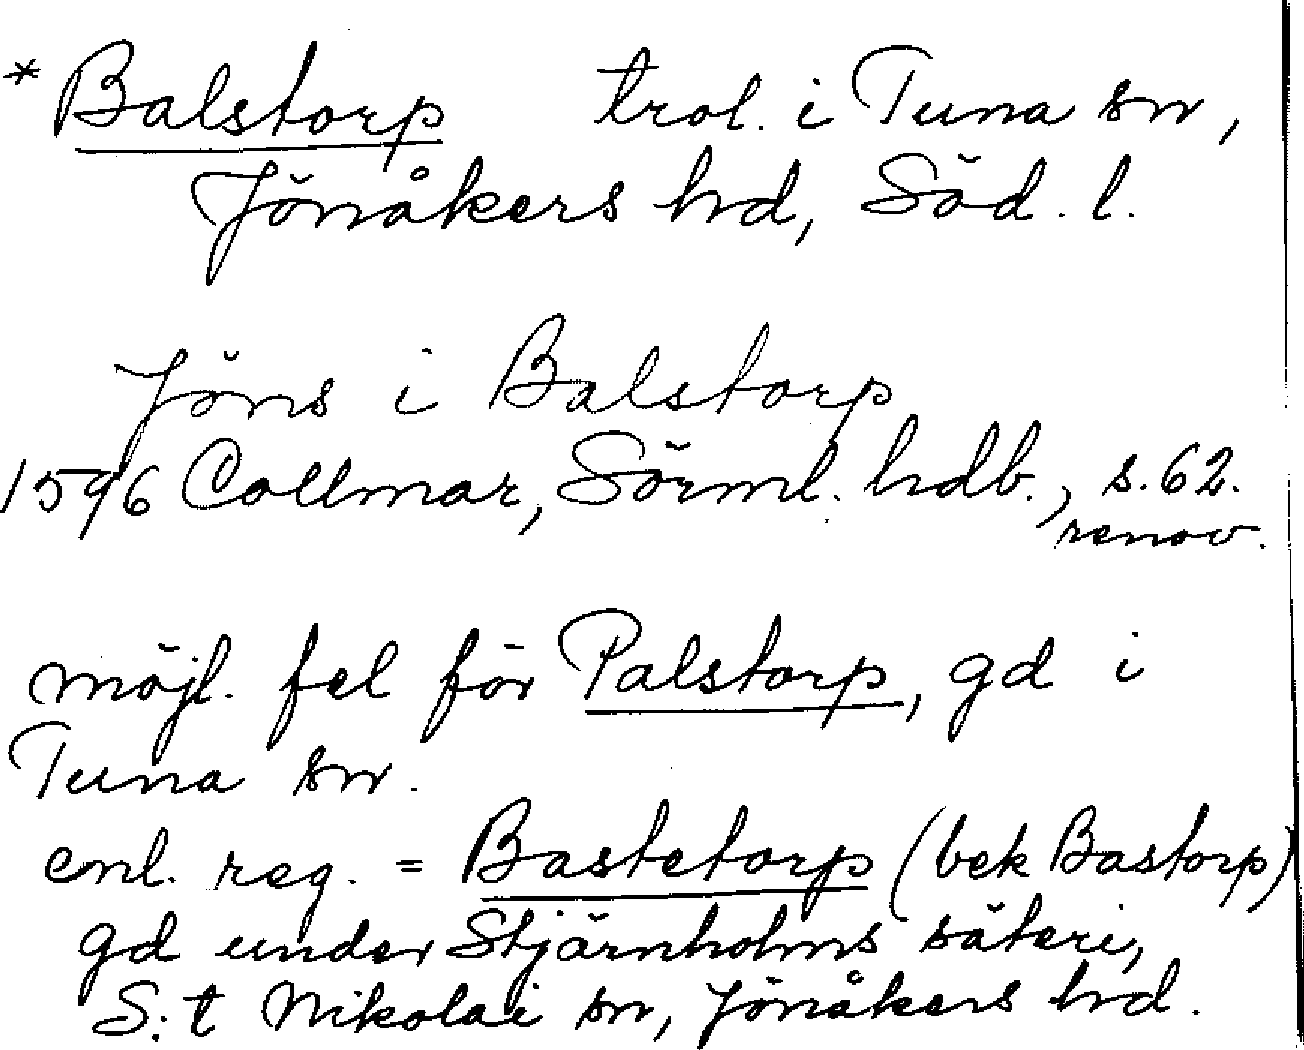 * Balstorp trol. i Tuna sn,
Jönåkers hd, Söd. l.
Jöns i Balstorp
1596 Collmar, Sörml. hdb., s. 62.
renov.
möjl. fel för Palstorp, gd i
Tuna sn.
enl. reg. = Bastetorp (bek Bastorp)
gd under Stjärnholms säteri,
S:t Nikolai sn, Jönåkers hd.